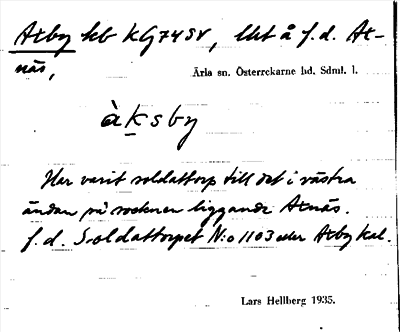 Axby kb KG7451, Ut å f.d. Ax-
näs,
Ärla sn. Österrekarne hd. Sdml. l.
àksby
Har varit soldattorp till det i västra
ändan på socknen liggande Axnäs.
f.d. Soldattorpet N:o 1103 eller Axby kal.
Lars Hellberg 1935.